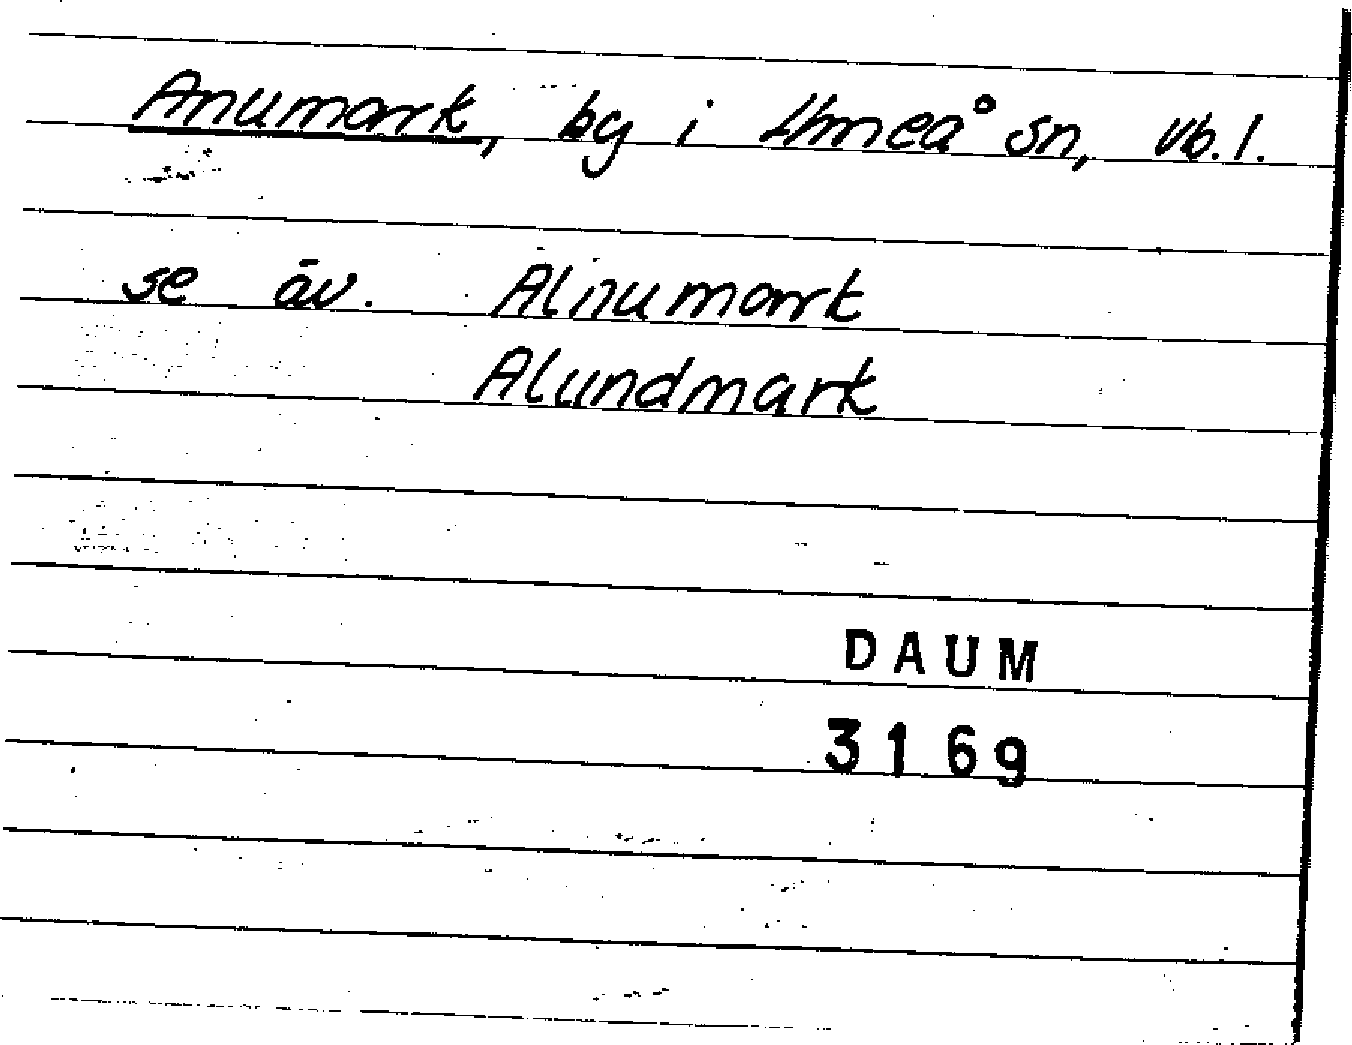 Anumark, by i Umeå sn, Vb. l.
se äv. Alnumark
Alundmark
DAUM
3169